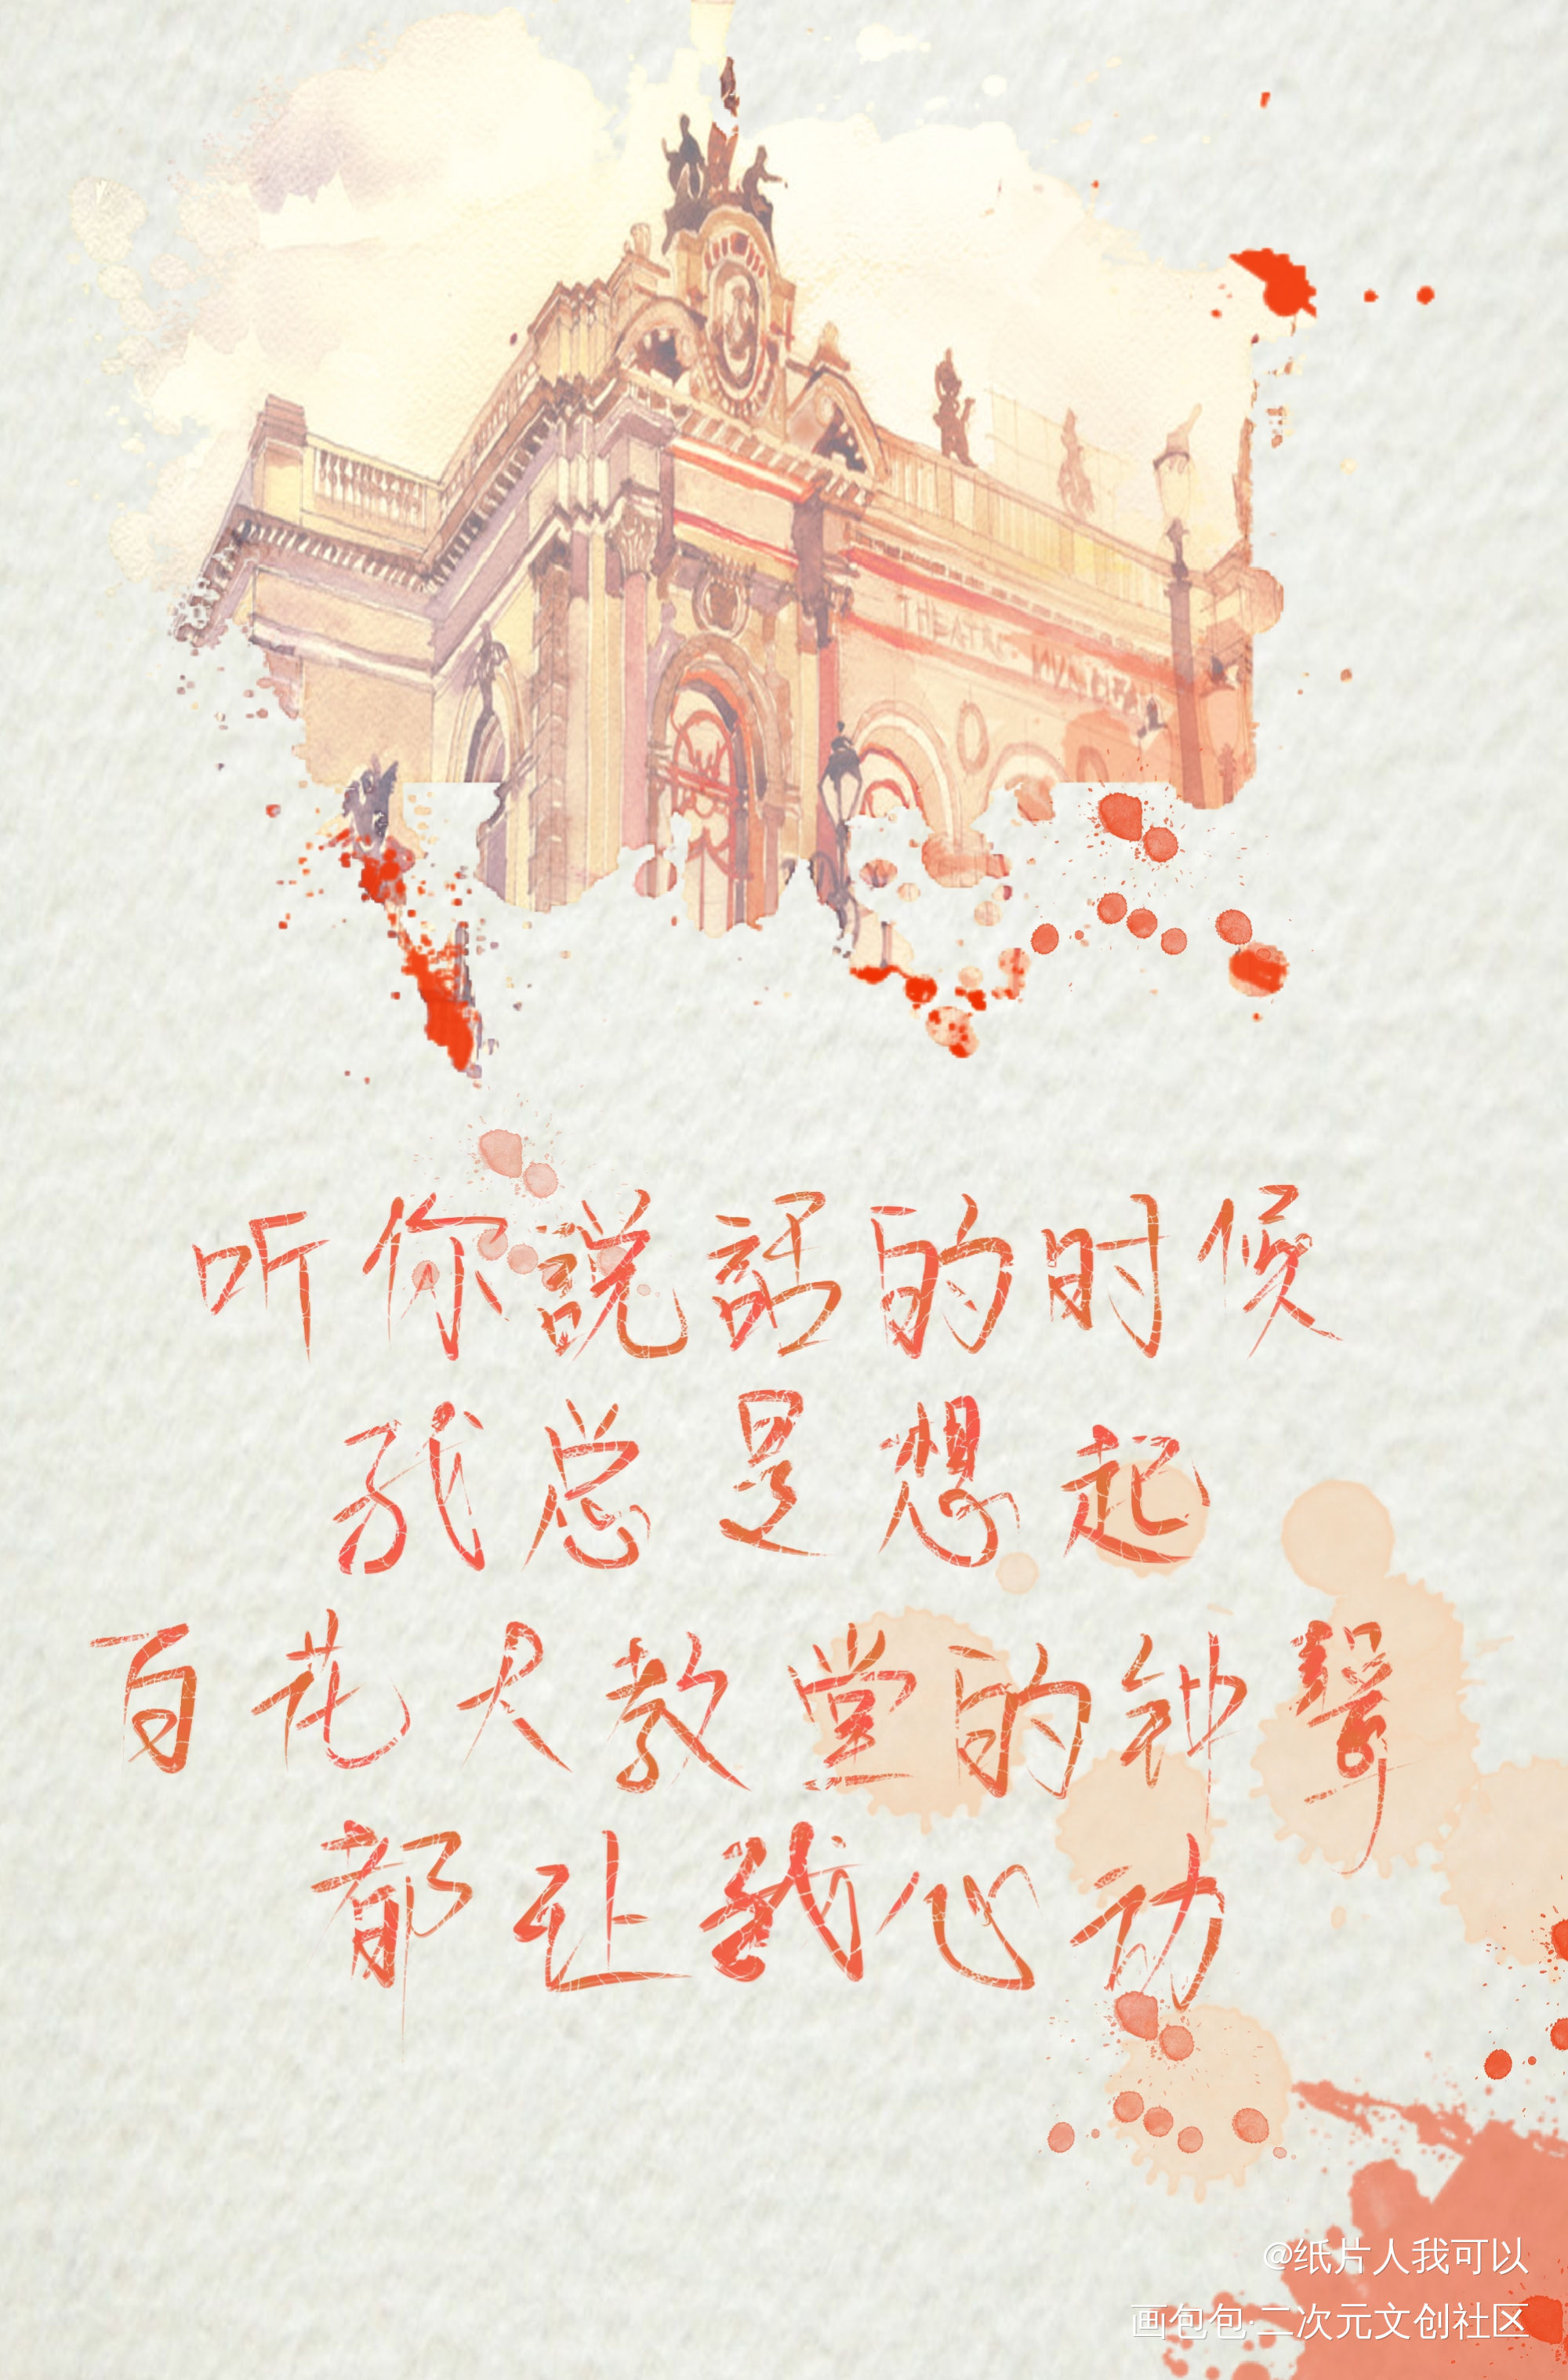 THEATRO MUNICIPAL
听你説話的时候
我总是想起
百花大教堂的钟聲
都让我心动
@纸片人我可以
画包包·二次元文创社区